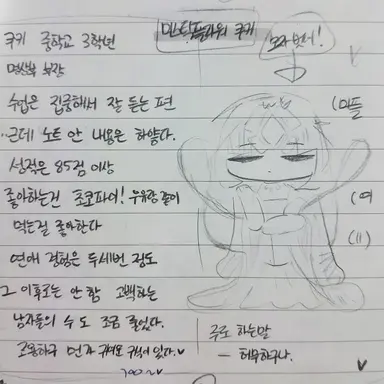 쿠키 중학교 3학년
명상부 부장
수업은 집중해서 잘 듣는 편
..근데 노트 안 내용은 하얗다.
성적은 85점 이상
좋아하는건 초코파이! 우유랑 같이
먹는걸 좋아한다
연애 경험은 두세번 정도
그 이후로는 안 함 고백하는
남자들의 수도 조금 줄었다.
조용하구 먼저
미스틱플라워 쿠키
모자 벗어!
(미플
(여
(11)
주로 하는말
— 허무하구나.